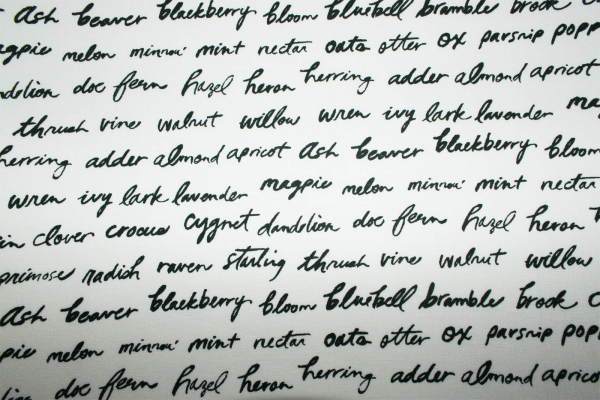 Ash beaver blackberry bloom bluebell bramble brook
magpie melon minnow mint nectar oats otter ox parsnip
dandelion doe fern hazel heron herring adder almond apricot
thrush vine walnut willow wren ivy lark lavender
herring adder almond apricot Ash beaver blackberry bloom
wren ivy lark lavender magpie melon minnow mint nectar
clover crocus cygnet dandelion doe fern hazel heron
primrose radish raven starling thrush vine walnut willow
Ash beaver blackberry bloom bluebell bramble brook
melon minnow mint nectar oats otter ox parsnip
doe fern hazel heron herring adder almond apricot